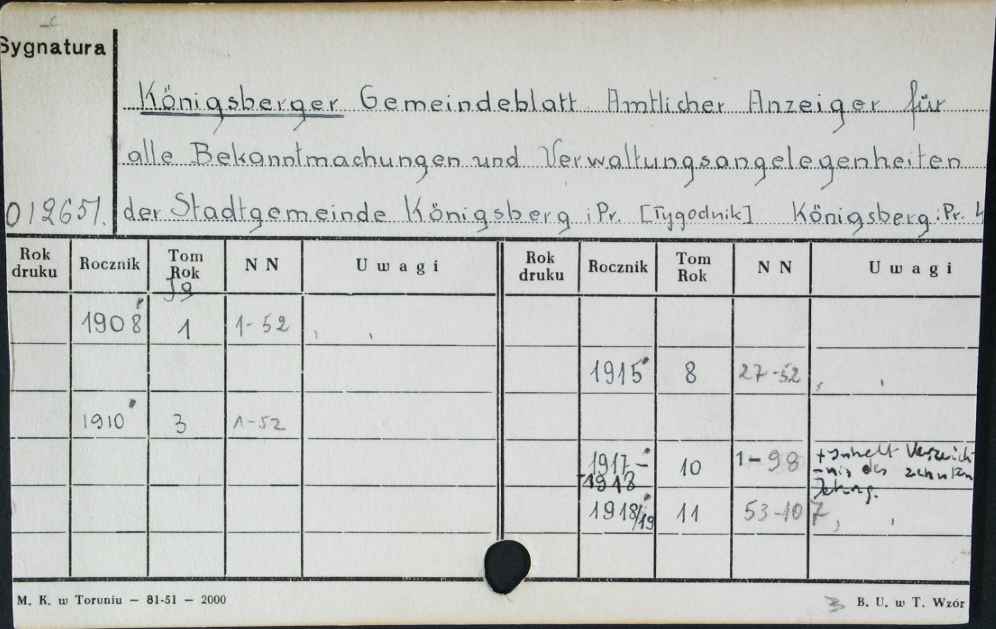 Sygnatura
Königsberger Gemeindeblatt Amtlicher Anzeiger für
alle Bekanntmachungen und Verwaltungsangelegenheiten
012651. der Stadtgemeinde Königsberg i Pr. [Tygodnik] Königsberg i Pr. 4
Rok druku Rocznik Tom Rok N N Uwagi Rok druku Rocznik Tom Rok N N Uwagi
Jg
1908 1 1-52
1915 8 27-52
1910 3 1-52
1917- 10 1-98 + Inhalt Verzeich
-1918 -nis des zehnten
Jahrg.
1918/19 11 53-107
M. K. w Toruniu — 81-51 — 2000 3 B. U. w T. Wzór